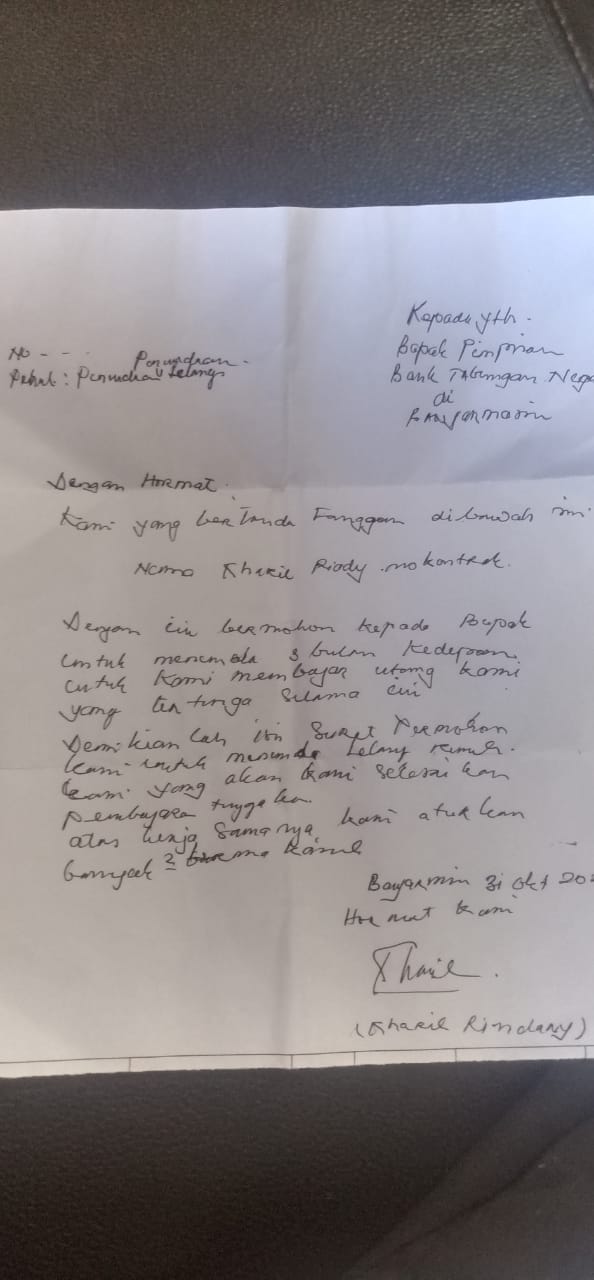 Kepada yth.
Bapak Pimpinan
Bank Tabungan Nega
di
Banjarmasin
No - - -
Penundaan
Perhal : Penundaan Lelang
Dengan Hormat.
Kami yang bertanda Tanggan dibawah ini
Nama Kharil Riady. no kontrak.
Dengan ini bermohon kepada Bapak
untuk menunda 3 bulan kedepan
untuk kami membayar utang kami
yang tertunga selama ini
Demikian lah ini Surat Permohon
kami untuk menunda Lelang rumah.
kami yang akan kami selesaikan
pembayara tuggaka
atas kerja samanya kami aturkan
banyak 2 kasih
31 Okt 20
Hormat kami
Kharil.
(Kharil Rindany)